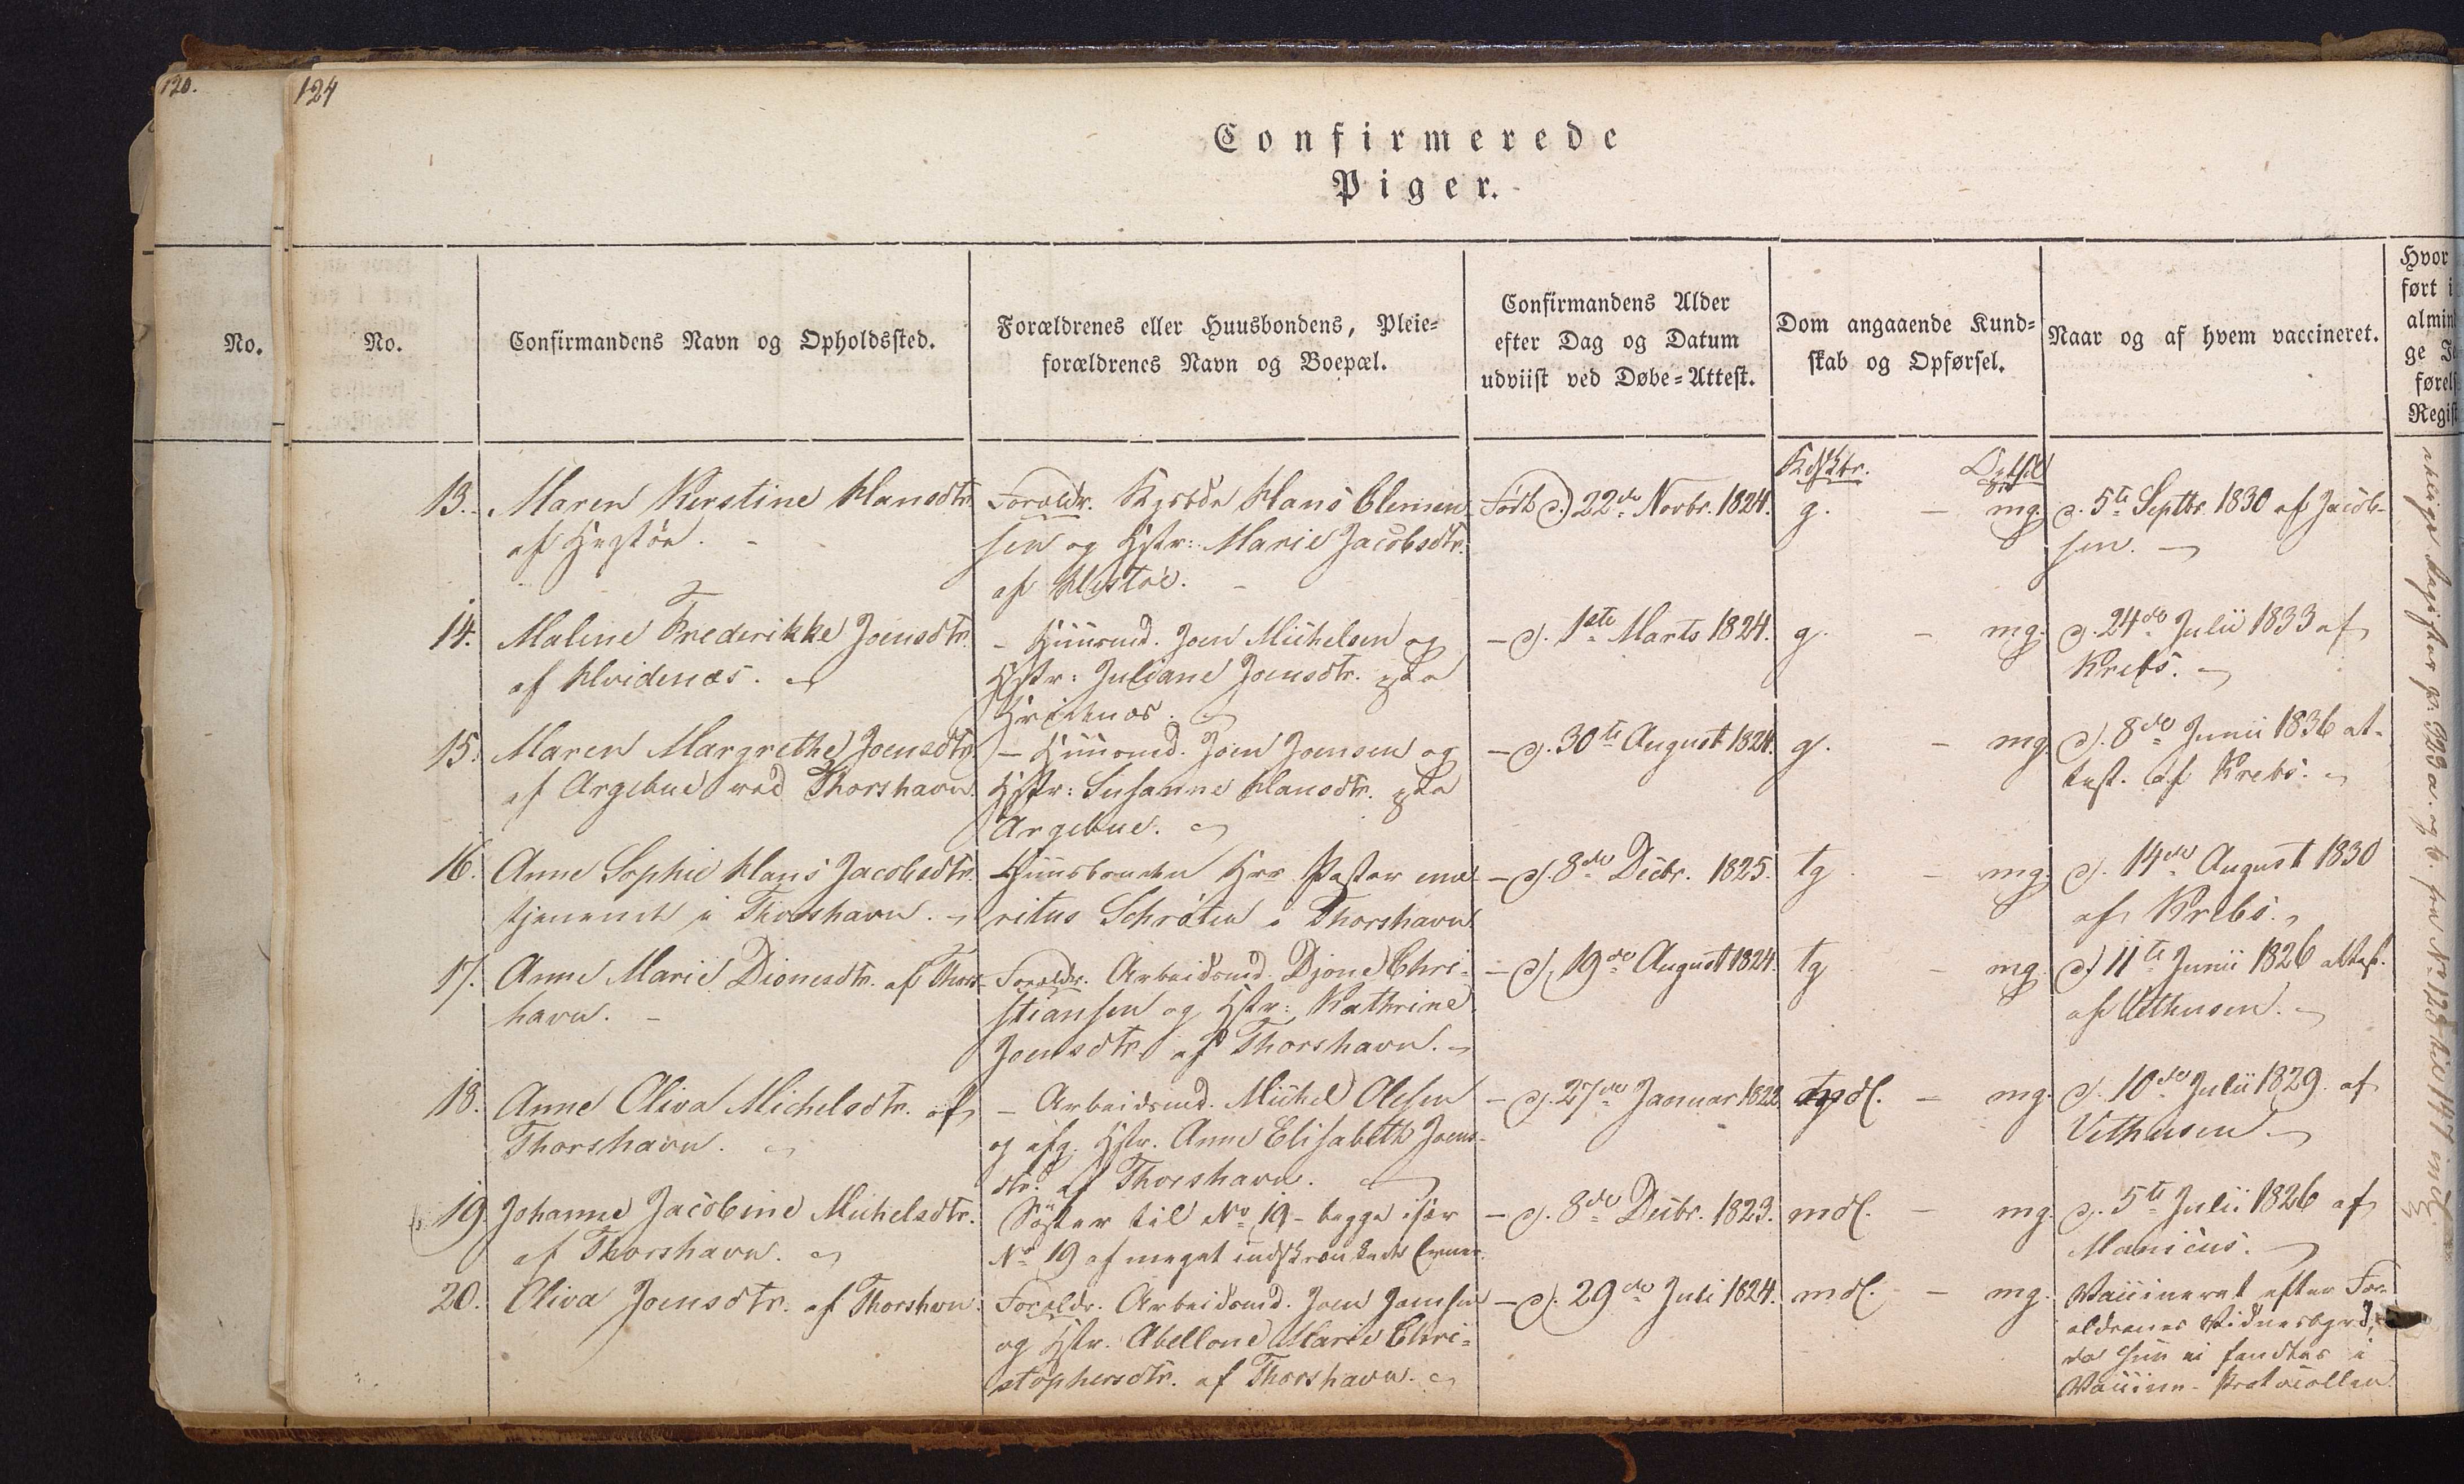 120.
124
Confirmerede
Piger.
No.
No.
Confirmandens Navn og Opholdssted.
Forældrenes eller Huusbondens, Pleie-
forældrenes Navn og Boepæl.
Confirmandens Alder
efter Dag og Datum
udviist ved Døbe-Attest.
Dom angaaende Kund-
skab og Opførsel.
Naar og af hvem vaccineret.
Hvor
ført i
almin
ge
førels
Regist
Kdskbr.
13. Maren Kerstine Hansdtr.
af Hestöe.
Forældr. Hans Clemen
sen og Hstr: Marie Jacobsdtr.
af Hestöe.
Född d. 22de Novbr. 1824.
g. - mg.
d. 5te Septbr. 1830 af Jacob-
sen.
14. Malene Frederikke Joensdtr.
af Hvidenæs.
- Huusmd. Joen Michelsen og
Hstr: Juliane Joensdtr. paa
Hvidenæs.
- d. 1ste Marts 1824.
g. - mg.
d. 24de Julii 1833 af
Krebs.
15. Maren Margrethe Joensdtr.
af Argebue ved Thorshavn.
- Huusmd. Joen Joensen og
Hstr: Susanne Hansdtr. paa
Argebue.
- d. 30te August 1824.
g. - mg.
d. 8de Junii 1836 at-
test. af Krebs.
16. Anne Sophie Hans Jacobsdtr.
tjenende i Thorshavn.
Huusbonden Hrr Pastor eme-
ritus Schröter i Thorshavn.
- d. 8de Decbr. 1825.
tg - mg.
d. 14de August 1830
af Krebs.
17. Anne Marie Dionesdtr. af Thors-
havn.
Forældr. Arbeidsmd. Djone Chri-
stiansen og Hstr: Kathrine
Joensdtr. af Thorshavn.
- d. 19de August 1824.
tg - mg.
d. 11te Junii 1826 attest.
af Vethusen.
18. Anne Oliva Michelsdtr. af
Thorshavn.
- Arbeidsmd. Michel Olesen
og afg. Hstr. Anne Elisabeth Joens-
dtr. af Thorshavn.
- d. 27de Januar 1822.
mdl. - mg.
d. 10de Julii 1829. af
Vethusen.
19. Johanne Jacobine Michelsdtr.
af Thorshavn.
Söster til No 19 - begge især
No 19 af meget indskrænkede Evner.
- d. 8de Decbr. 1823.
mdl. - mg.
d. 5te Julii 1826 af
Manicus.
20. Oliva Joensdtr. af Thorshvn.
Forældr. Arbeidsmd. Joen Joensen
og Hstr. Abellone Marie Chri-
stophersdtr. af Thorshavn.
- d. 29de Juli 1824.
mdl. - mg.
Vaccineret efter For-
ældrenes Vidnesbyrd,
da hun ei fandtes i
Vaccine-Protocollen.
Register p. 323 a. og b. fra No 123 til 147 incl.